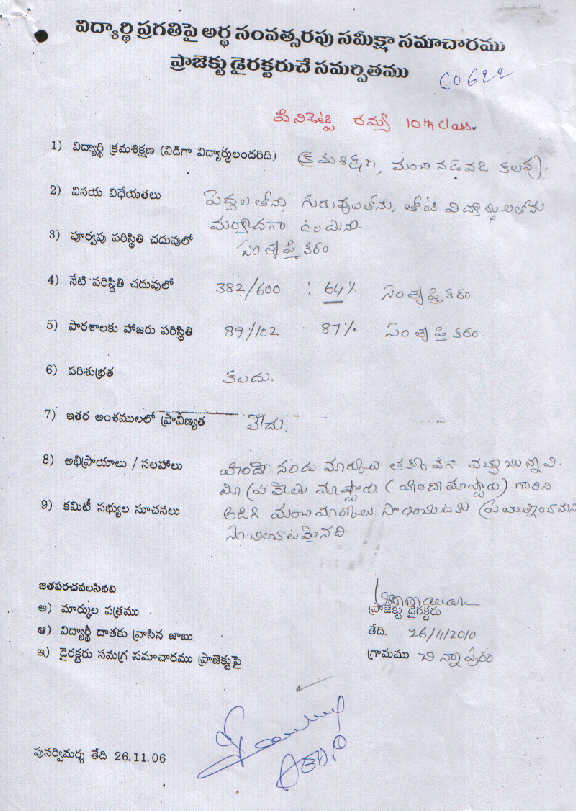 విద్యార్థి ప్రగతిపై అర్ధ సంవత్సరపు సమీక్షా సమాచారము
ప్రాజెక్టు డైరక్టరుచే సమర్పితము C0622
రమ్య 10th class.
1) విద్యార్థి క్రమశిక్షణ (విడిగా విద్యార్థులందరిది) క్రమశిక్షణ, మంచి నడవడి కలదు.
2) వినయ విధేయతలు పెద్దలతోను గురువులతోను, తోటి విద్యార్థులతోను
మర్యాదగా ఉండును.
3) పూర్వపు పరిస్థితి చదువులో సంతృప్తికరం
4) నేటి పరిస్థితి చదువులో 382/600 : 64% సంతృప్తికరం
5) పాఠశాలకు హాజరు పరిస్థితి 89/102 87% సంతృప్తికరం.
6) పరిశుభ్రత కలదు.
7) ఇతర అంశములలో ప్రావీణ్యత లేదు.
8) అభిప్రాయాలు / సలహాలు హిందీ నందు మార్కులు తక్కువగా
9) కమిటీ సభ్యుల సూచనలు
జతపరచవలసినవి
అ) మార్కుల పత్రము
ఆ) విద్యార్థి దాతకు వ్రాసిన జాబు
ఇ) డైరక్టరు సమగ్ర సమాచారము ప్రాజెక్టుపై
ప్రాజెక్టు డైరక్టరు
తేది. 26/11/2010
గ్రామము చిన్నాపురం
పునర్విమర్శ తేది 26.11.06